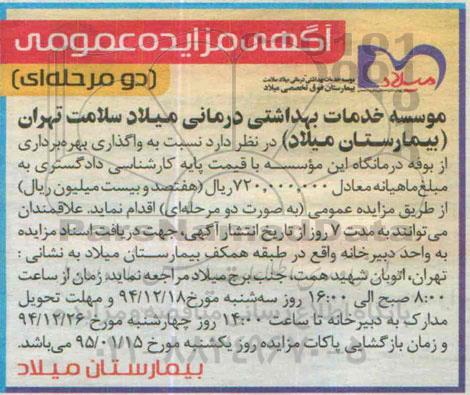 آگهی مزایده عمومی
(دو مرحله‌ای)
میلاد
موسسه خدمات بهداشتی درمانی میلاد سلامت
بیمارستان فوق تخصصی میلاد
موسسه خدمات بهداشتی درمانی میلاد سلامت تهران
(بیمارستان میلاد) در نظر دارد نسبت به واگذاری بهره‌برداری
از بوفه درمانگاه این مؤسسه با قیمت پایه کارشناسی دادگستری به
مبلغ ماهیانه معادل ۷۲۰,۰۰۰,۰۰۰ریال (هفتصد و بیست میلیون ریال)
از طریق مزایده عمومی (به صورت دو مرحله‌ای) اقدام نماید. علاقمندان
می‌توانند به مدت ۷ روز از تاریخ انتشار آگهی، جهت دریافت اسناد مزایده
به واحد دبیرخانه واقع در طبقه همکف بیمارستان میلاد به نشانی :
تهران، اتوبان شهید همت، جنب برج میلاد مراجعه نمایند. زمان از ساعت
۸:۰۰ صبح الی ۱۶:۰۰ روز سه‌شنبه مورخ ۹۴/۱۲/۱۸ و مهلت تحویل
مدارک به دبیرخانه تا ساعت ۱۴:۰۰ روز چهارشنبه مورخ ۹۴/۱۲/۲۶
و زمان بازگشایی پاکات مزایده روز یکشنبه مورخ ۹۵/۰۱/۱۵ می‌باشد.
بیمارستان میلاد